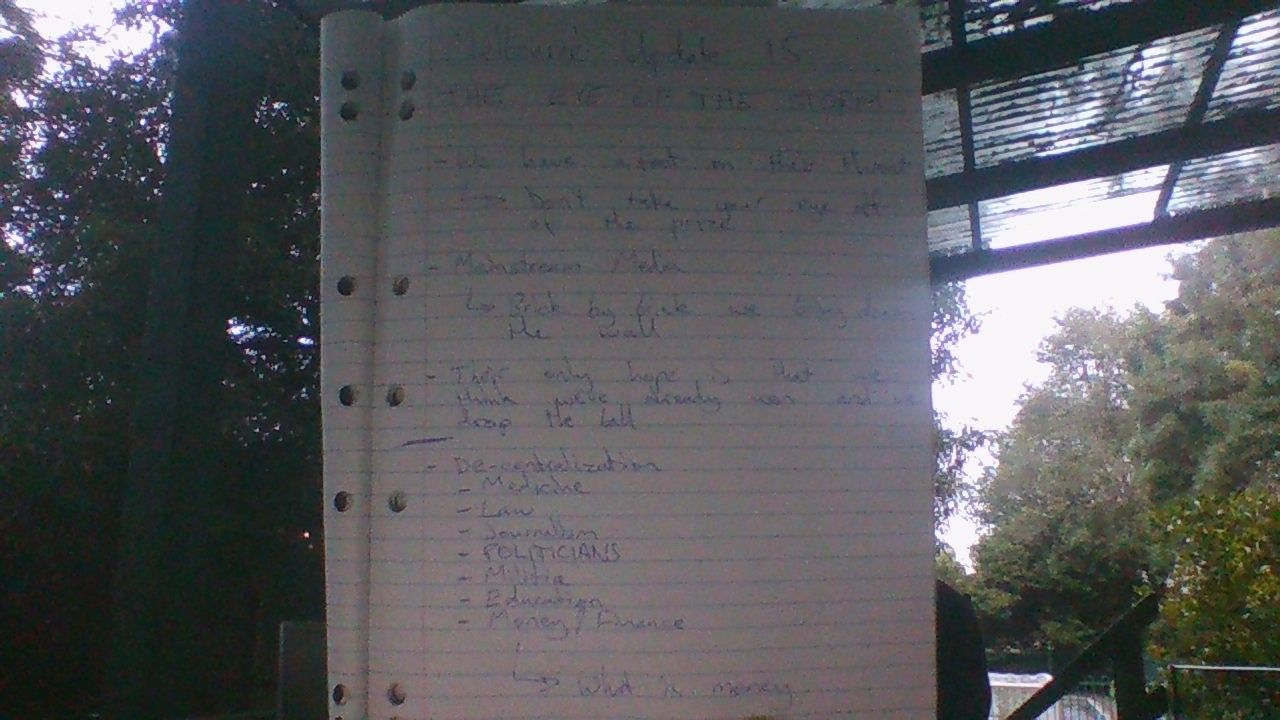 Melbourne Update 15
THE EYE OF THE STORM
- We have a foot on their throat
↳ Don't take your eye off
of the prize
- Mainstream Media
↳ Brick by brick we bring down
the wall
- Their only hope is that we
think we've already won and we
drop the ball
- De-centralization
- Medicine
- Law
- Journalism
- POLITICIANS
- Militia
- Education
- Money / Finance
↳ What is money